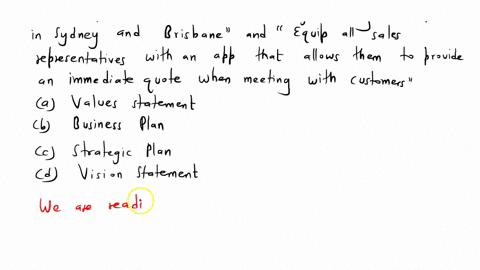 in Sydney and Brisbane" and "Equip all sales
representatives with an app that allows them to provide
an immediate quote when meeting with customers"
(a) Values statement
(b) Business Plan
(c) Strategic Plan
(d) Vision Statement
We are readi